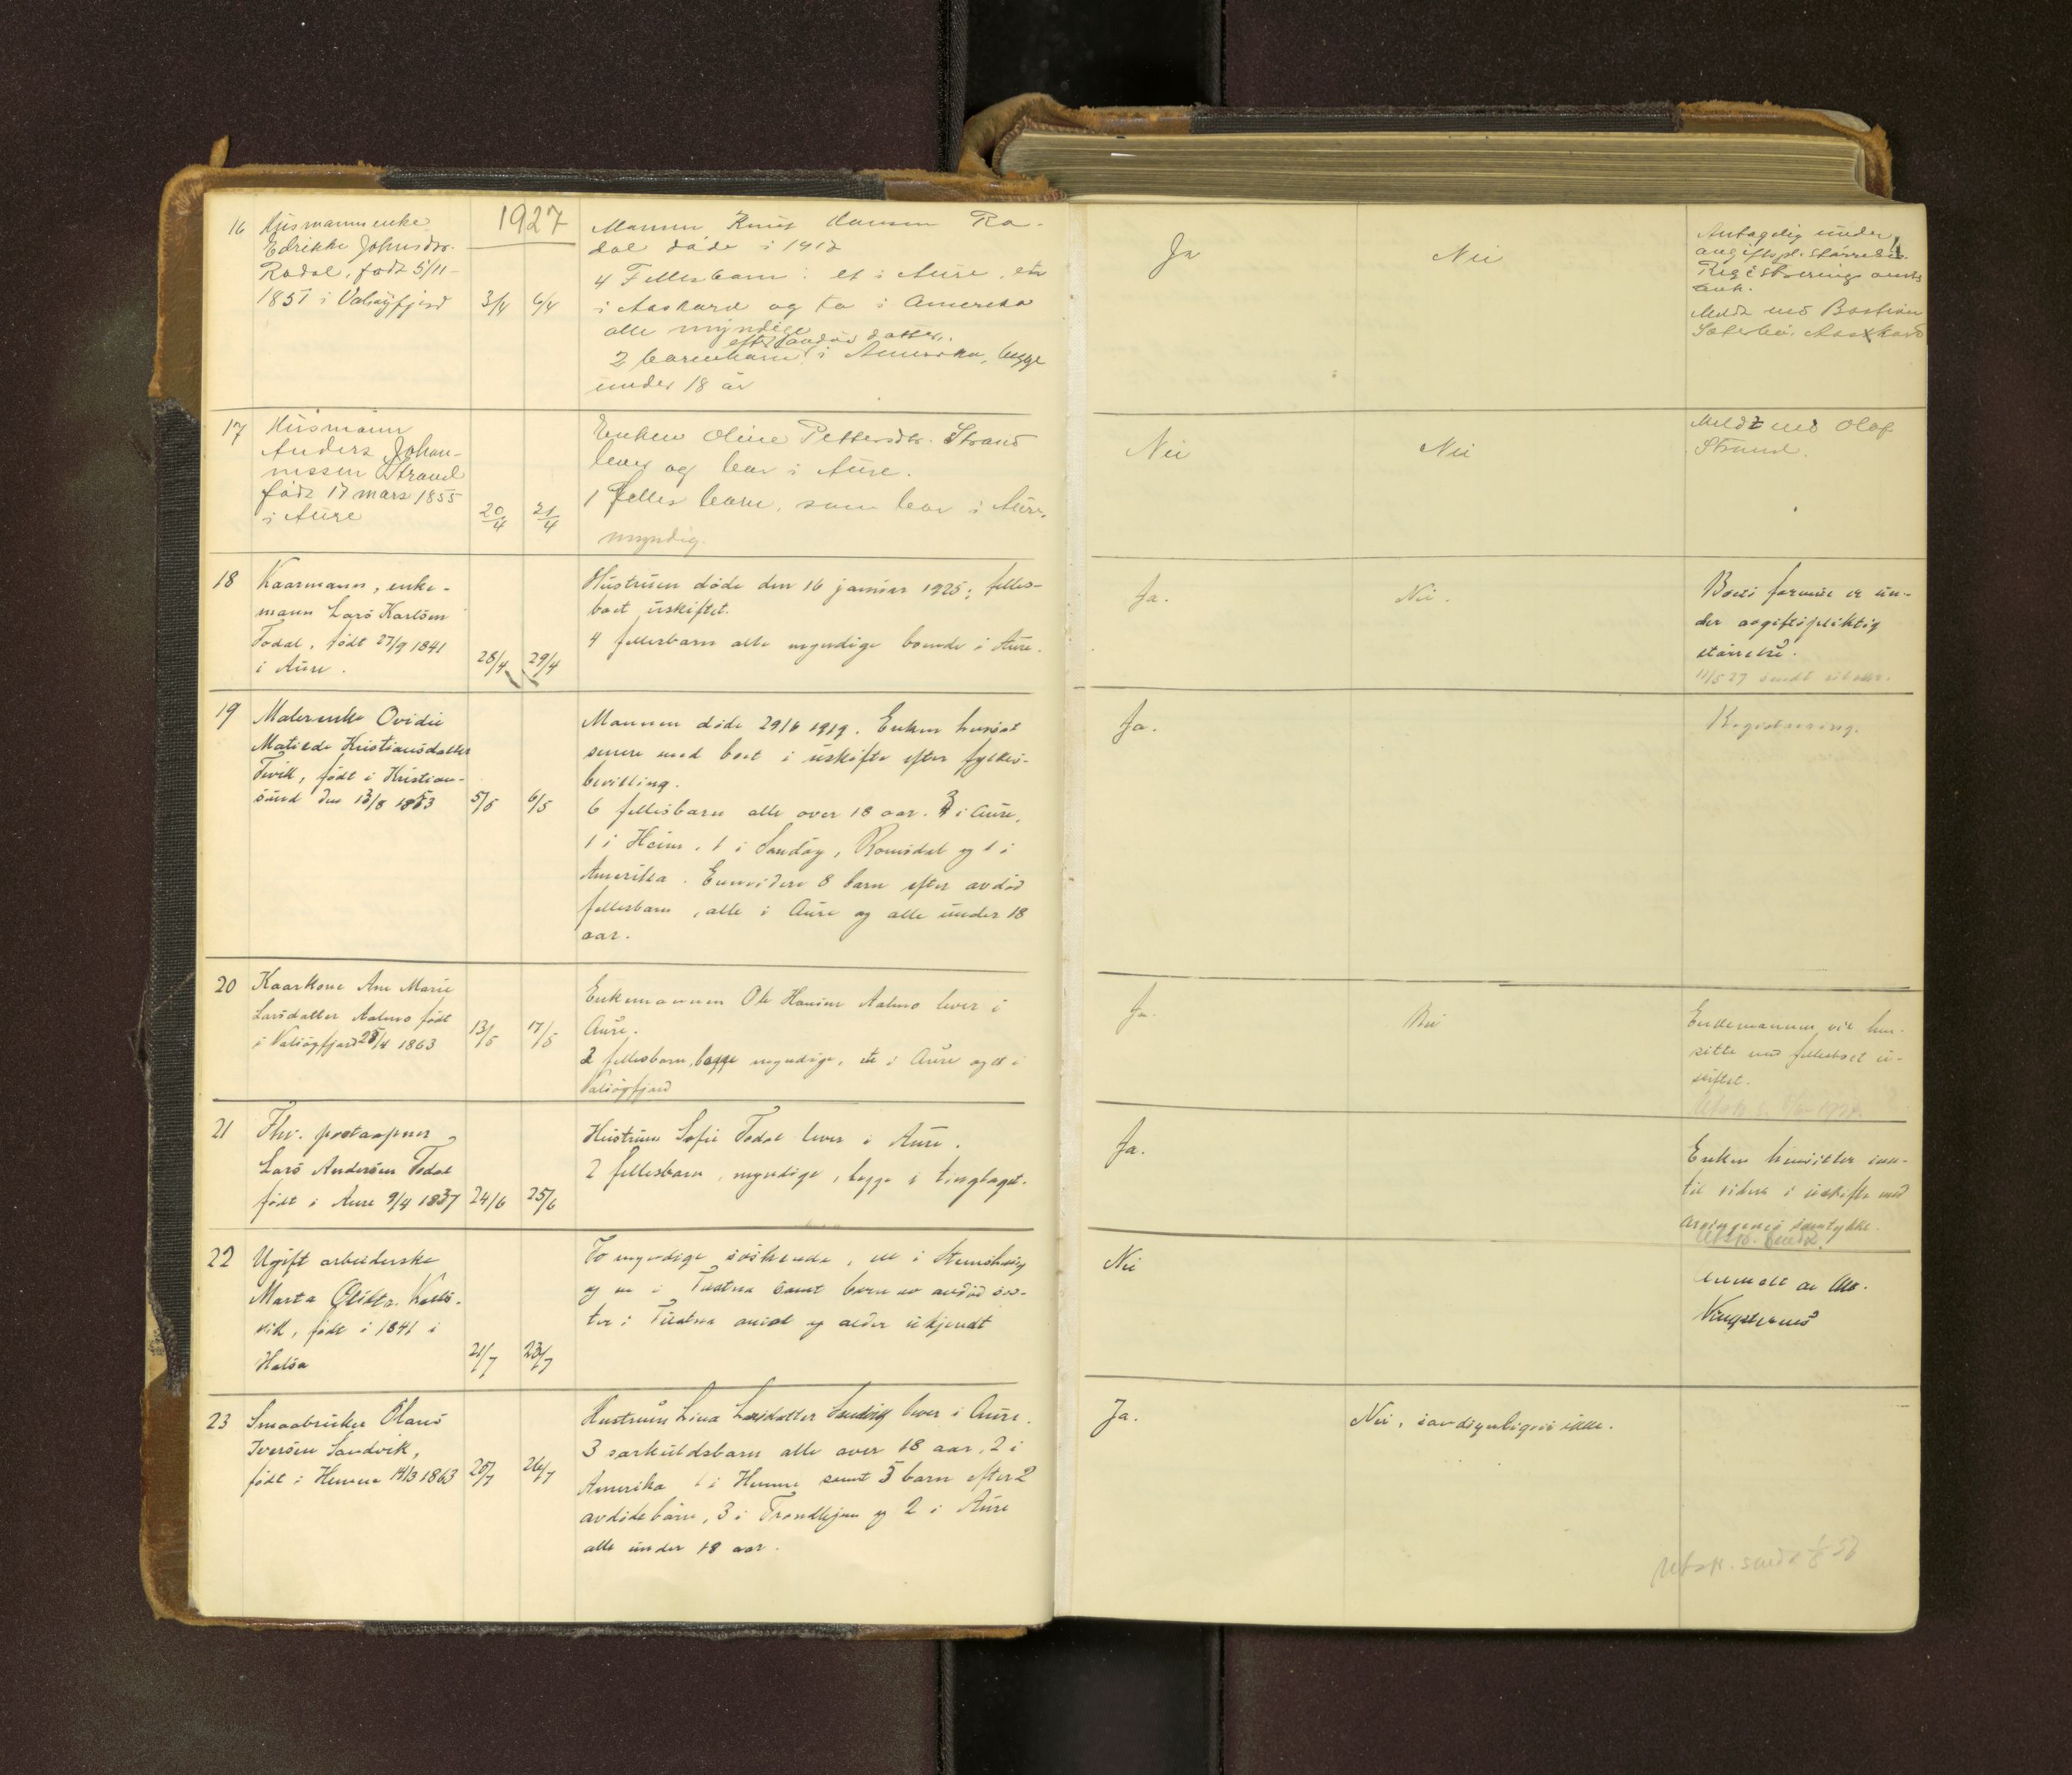 1927
16 Husmannsenke
Edrikke Johnsdtr.
Rodal, født 5/11-
1851 i Valsøyfjord 3/4 6/4
Mannen Knut Hansen Ro-
dal døde i 1912
4 Fellesbarn: et i Aure, et
i Aaskard og to i Amerika
alle myndige
efter avdød datter
2 barnebarn i Amerika, begge
under 18 år
Ja
Nei
Antagelig under
avgiftspl. størrelse.
Registrering
Meldt ved
17 Husmann
Anders Johan-
nessen Strand
født 17 mars 1855
i Aure 20/4 21/4
Enken Oline Pettersdtr. Strand
lever og bor i Aure.
1 felles barn, som bor i Aure,
myndig.
Nei
Nei
Meldt ved Olaf
Strand.
18 Kaarmann, enke-
mann Lars Karlsen
Todal, født 27/9 1841
i Aure. 28/4 29/4
Hustruen døde den 16 januar 1925; felles-
boet uskiftet.
4 fellesbarn alle myndige boende i Aure.
Ja.
Nei.
Boets formue er un-
der avgiftspliktig
størrelse.
11/5 27 sendt
19 Malerenke Ovidie
Matilde Kristiansdatter
Tevik, født i Kristian-
sund den 13/8 1853 5/5 6/5
Mannen døde 29/6 1919. Enken hensat
senere med boet i uskifte efter fylkes-
bevilling.
6 fellesbarn alle over 18 aar. 3 i Aure,
1 i Heim, 1 i Sandøy, Romsdal og 1 i
Amerika. Envidere 8 barn efter avdød
fellesbarn, alle i Aure og alle under 18
aar.
Ja.
Registrering.
20 Kaarkone Ane Marie
Larsdatter Aalmo født
i Valsøyfjord 25/4 1863 13/5 17/5
Enkemannen Ole Hansen Aalmo lever i
Aure.
2 fellesbarn, begge myndige, et i Aure og et i
Valsøyfjord
Ja.
Nei
Enkemannen vil hen-
sitte med fellesboet u-
skiftet.
21 Fhv. postaapner
Lars Andersen Todal
født i Aure 9/4 1837 24/6 25/6
Hustruen Sofie Todal lever i Aure.
2 fellesbarn, myndige, begge i tinglaget.
Ja.
Enken hensitter inn-
til videre i uskifte med
arvingenes samtykke.
Utskr. sendt.
22 Ugift arbeiderske
Marta Olsdtr.
vik, født i 1841 i
Halsa 21/7 23/7
To myndige søskende, en i Stemshaug
og en i Tustna samt barn av avdød søs-
ter i Tustna antal og alder ukjendt
Nei
Anmeldt av
23 Smaabruker Olaus
Iversen Sandvik,
født i Hemne 14/3 1863 25/7 26/7
Hustruen Lina Larsdatter Sandvik lever i Aure.
3 særkuldsbarn alle over 18 aar, 2 i
Amerika 1 i Hemne samt 5 barn efter 2
avdøde barn, 3 i Trondhjem og 2 i Aure
alle under 18 aar.
Ja.
Nei, sandsynligvis ikke.
Utskr. sendt